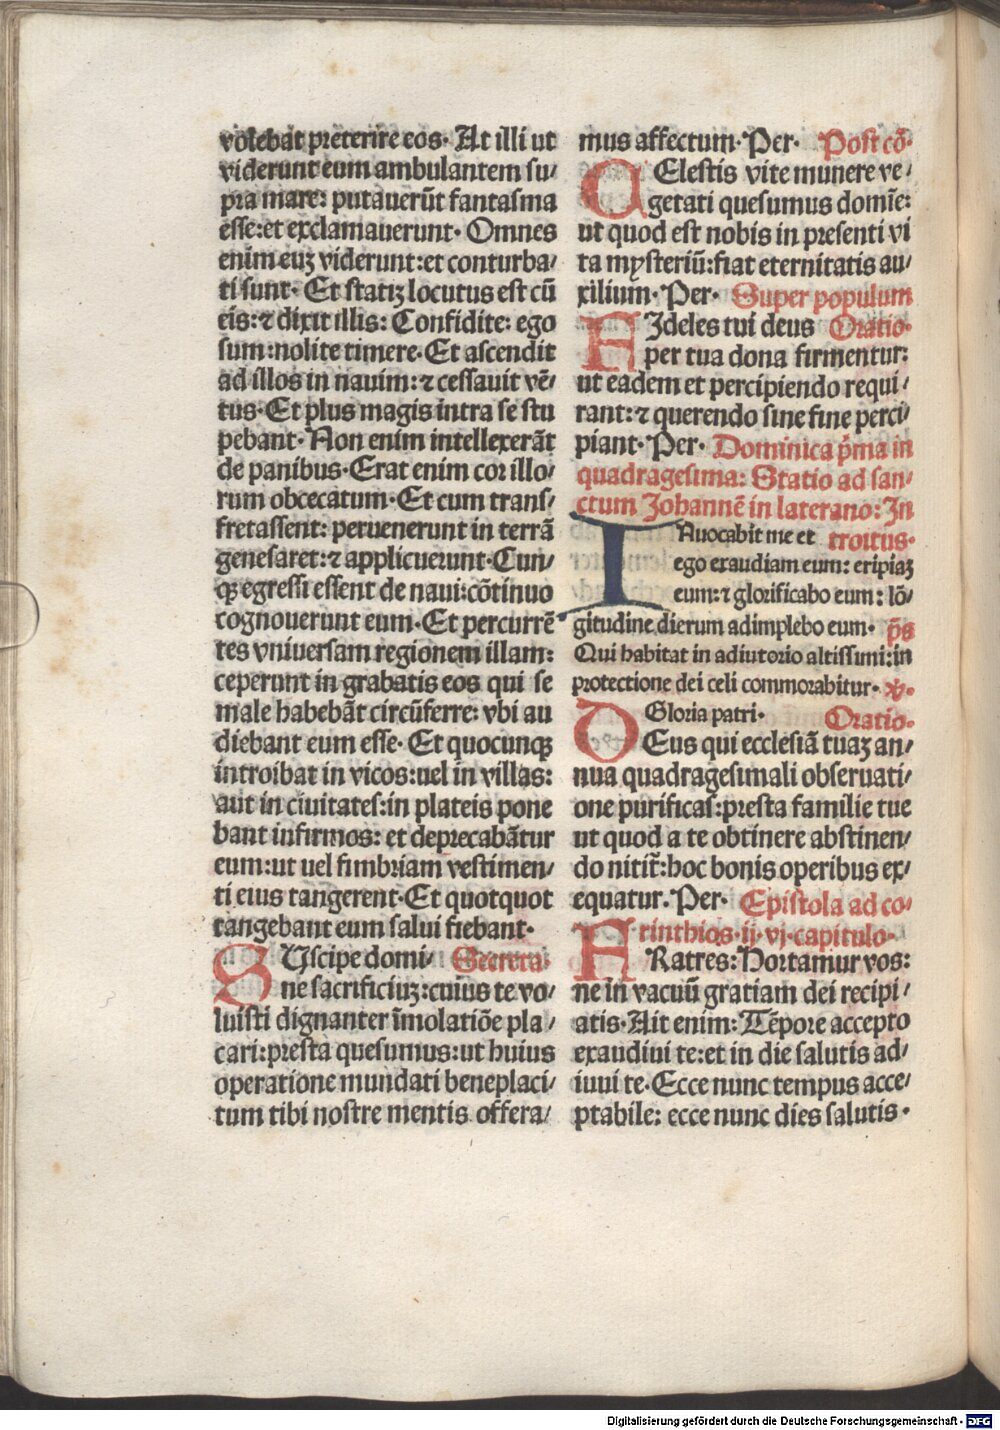 volebat preterire eos· At illi ut
viderunt eum ambulantem su⸗
pra mare: putauerūt fantasma
esse: et exclamauerunt· Omnes
enim euꝫ viderunt: et conturba⸗
ti sunt· Et statiꝫ locutus est cū
eis: ⁊ dixit illis: Confidite: ego
sum: nolite timere· Et ascendit
ad illos in nauim: ⁊ cessauit vē⸗
tus· Et plus magis intra se stu
pebant· Non enim intellexerāt
de panibus· Erat enim cor illo⸗
rum obcecatum· Et cum trans⸗
fretassent: peruenerunt in terrā
genesaret: ⁊ applicuerunt· Cun⸗
qꝫ egressi essent de naui: cōtinuo
cognouerunt eum· Et percurrē
tes vniuersam regionem illam:
ceperunt in grabatis eos qui se
male habebāt circūferre: vbi au
diebant eum esse· Et quocunqꝫ
introibat in vicos: uel in villas:
aut in ciuitates: in plateis pone
bant infirmos: et deprecabātur
eum: ut uel fimbriam vestimen⸗
ti eius tangerent· Et quotquot
tangebant eum salui fiebant·
SUscipe domi⸗ Secreta·
ne sacrificiuꝫ: cuius te vo⸗
luisti dignanter īmolatiōe pla⸗
cari: presta quesumus: ut huius
operatione mundati beneplaci⸗
tum tibi nostre mentis offera⸗
mus affectum· Per· Post cō·
CElestis vite munere ve⸗
getati quesumus domīe:
ut quod est nobis in presenti vi
ta mysteriū: fiat eternitatis au⸗
xilium· Per· Super populum
FIdeles tui deus Oratio·
per tua dona firmentur:
ut eadem et percipiendo requi⸗
rant: ⁊ querendo sine fine perci⸗
piant· Per· Dominica p̄ma in
quadragesima: Statio ad san⸗
ctum Johannē in laterano: In
INuocabit me et troitus·
ego exaudiam eum: eripiaꝫ
eum: ⁊ glorificabo eum: lō⸗
gitudine dierum adimplebo eum· p̄s
Qui habitat in adiutorio altissimi: in
protectione dei celi commorabitur· ℣·
Gloria patri· Oratio·
DEus qui ecclesiā tuaꝫ an⸗
nua quadragesimali obseruati⸗
one purificas: presta familie tue
ut quod a te obtinere abstinen⸗
do nitit̄: hoc bonis operibus ex⸗
equatur. Per· Epistola ad co⸗
rinthios· ij· vj· capitulo·
FRatres: Hortamur vos:
ne in vacuū gratiam dei recipi⸗
atis· Ait enim: Tēpore accepto
exaudiui te: et in die salutis ad⸗
iuui te· Ecce nunc tempus acce⸗
ptabile: ecce nunc dies salutis·
Digitalisierung gefördert durch die Deutsche Forschungsgemeinschaft - DFG